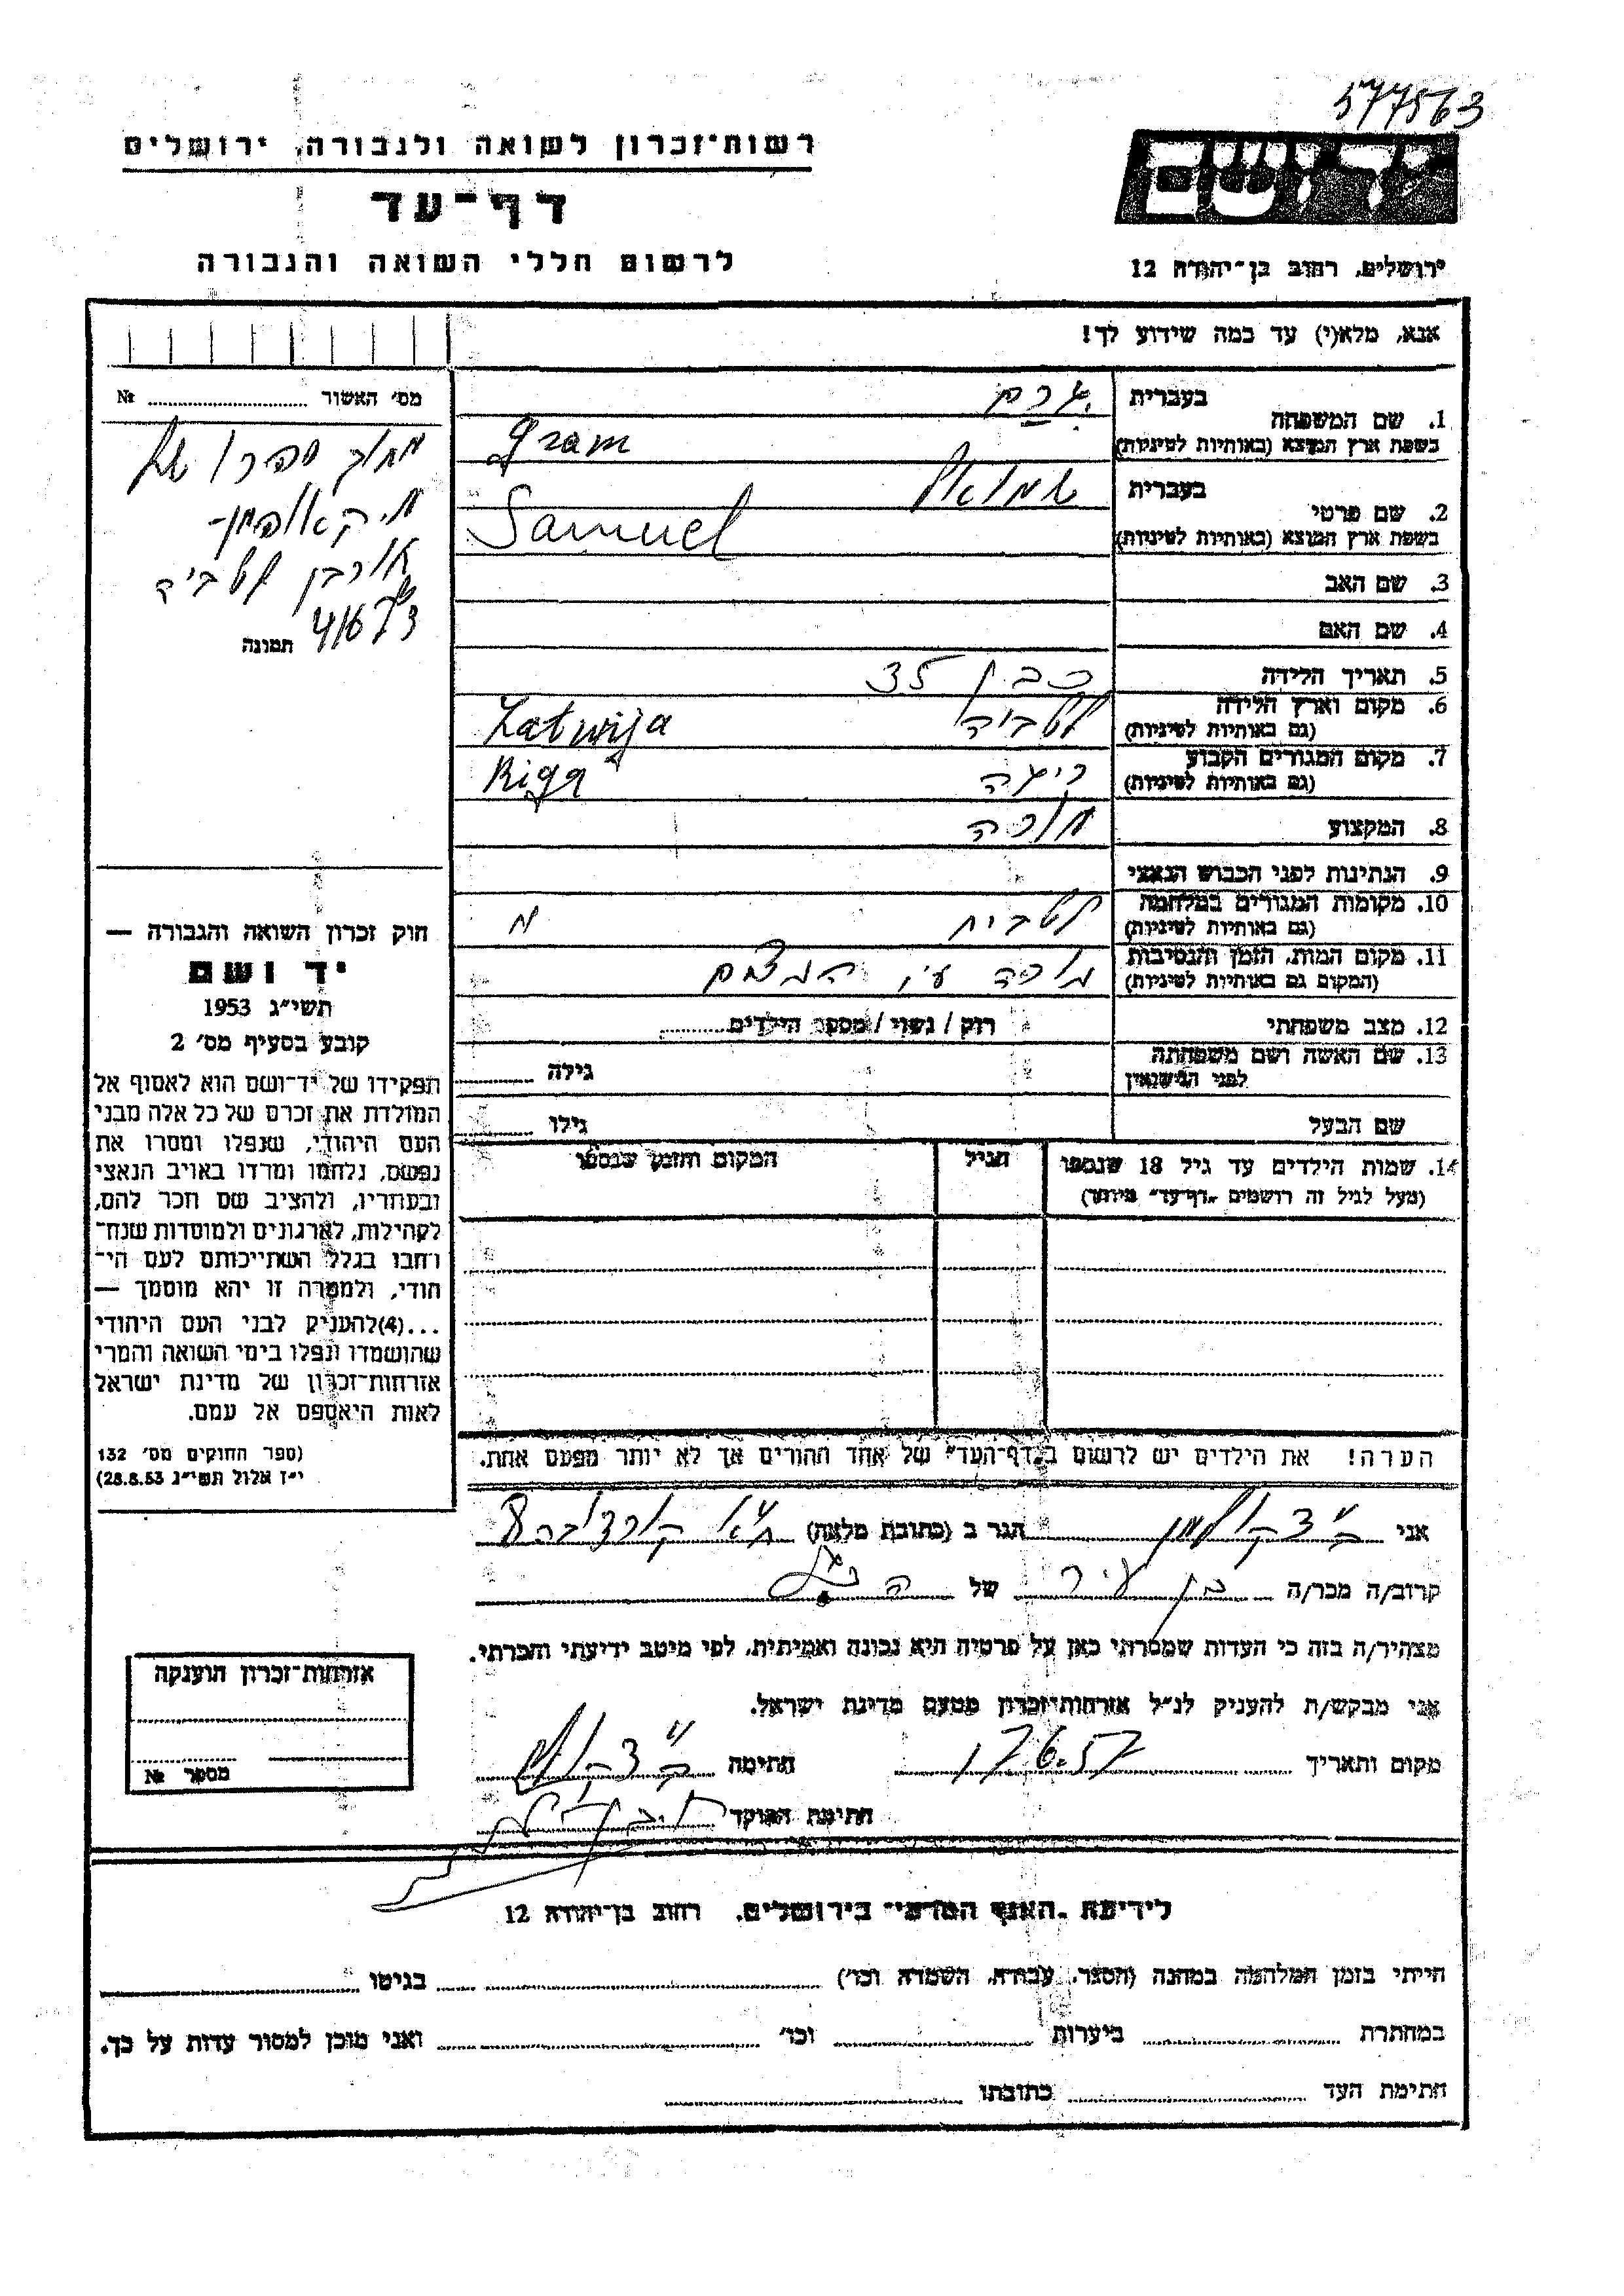 577563
רשות־זכרון לשואה ולגבורה, ירושלים
דף־עד
לרשום חללי השואה והגבורה
יד ושם
ירושלים, רחוב בן־יהודה 12
אנא, מלא(י) עד כמה שידוע לך!
1. שם המשפחה
בעברית גרם
בשפת ארץ המוצא (באותיות לטיניות) gram
2. שם פרטי
בעברית שמואל
בשפת ארץ המוצא (באותיות לטיניות) Samuel
3. שם האב
4. שם האם
5. תאריך הלידה כבן 35
6. מקום וארץ הלידה לטביה Latwija
(גם באותיות לטיניות)
7. מקום המגורים הקבוע ריגה Riga
(גם באותיות לטיניות)
8. המקצוע
9. הנתינות לפני הכבוש הנאצי
10. מקומות המגורים במלחמה
(גם באותיות לטיניות)
11. מקום המות, הזמן והנסיבות
(המקום גם באותיות לטיניות)
12. מצב משפחתי רווק / נשוי / מספר הילדים
13. שם האשה ושם משפחתה גילה
לפני הנישואין
שם הבעל גילו
14. שמות הילדים עד גיל 18 שנספו הגיל המקום והזמן שנספו
(מעל לגיל זה רושמים „דף־עד" מיוחד)
הערה! את הילדים יש לרשום ב„דף־העד" של אחד ההורים אך לא יותר מפעם אחת.
מס׳ האשור №
מתוך ספרו של
תמונה
חוק זכרון השואה והגבורה —
יד ושם
תשי״ג 1953
קובע בסעיף מס׳ 2
תפקידו של יד־ושם הוא לאסוף אל
המולדת את זכרם של כל אלה מבני
העם היהודי, שנפלו ומסרו את
נפשם, נלחמו ומרדו באויב הנאצי
ובעוזריו, ולהציב שם וזכר להם,
לקהילות, לארגונים ולמוסדות שנח־
רחבו בגלל השתייכותם לעם הי־
הודי, ולמטרה זו יהא מוסמך —
...(4)להעניק לבני העם היהודי
שהושמדו ונפלו בימי השואה והמרי
אזרחות־זכרון של מדינת ישראל
לאות היאספם אל עמם.
(ספר החוקים מס׳ 132
י״ז אלול תשי״ג 28.8.53)
אני הגר ב (כתובת מלאה)
קרוב/ה מכר/ה בן עיר של
מצהיר/ה בזה כי העדות שמסרתי כאן על פרטיה היא נכונה ואמיתית, לפי מיטב ידיעתי והכרתי.
אני מבקש/ת להעניק לנ״ל אזרחות־זכרון מטעם מדינת ישראל.
מקום ותאריך 17.6.57 חתימה
חתימת הפוקד
אזרחות־זכרון הוענקה
מספר №
לידיעת „האגף המדעי" בירושלים, רחוב בן־יהודה 12
הייתי בזמן המלחמה במחנה (הסגר, עבודה, השמדה וכו׳) בגיטו
במחתרת ביערות וכו׳ ואני מוכן למסור עדות על כך.
חתימת העד כתובתו